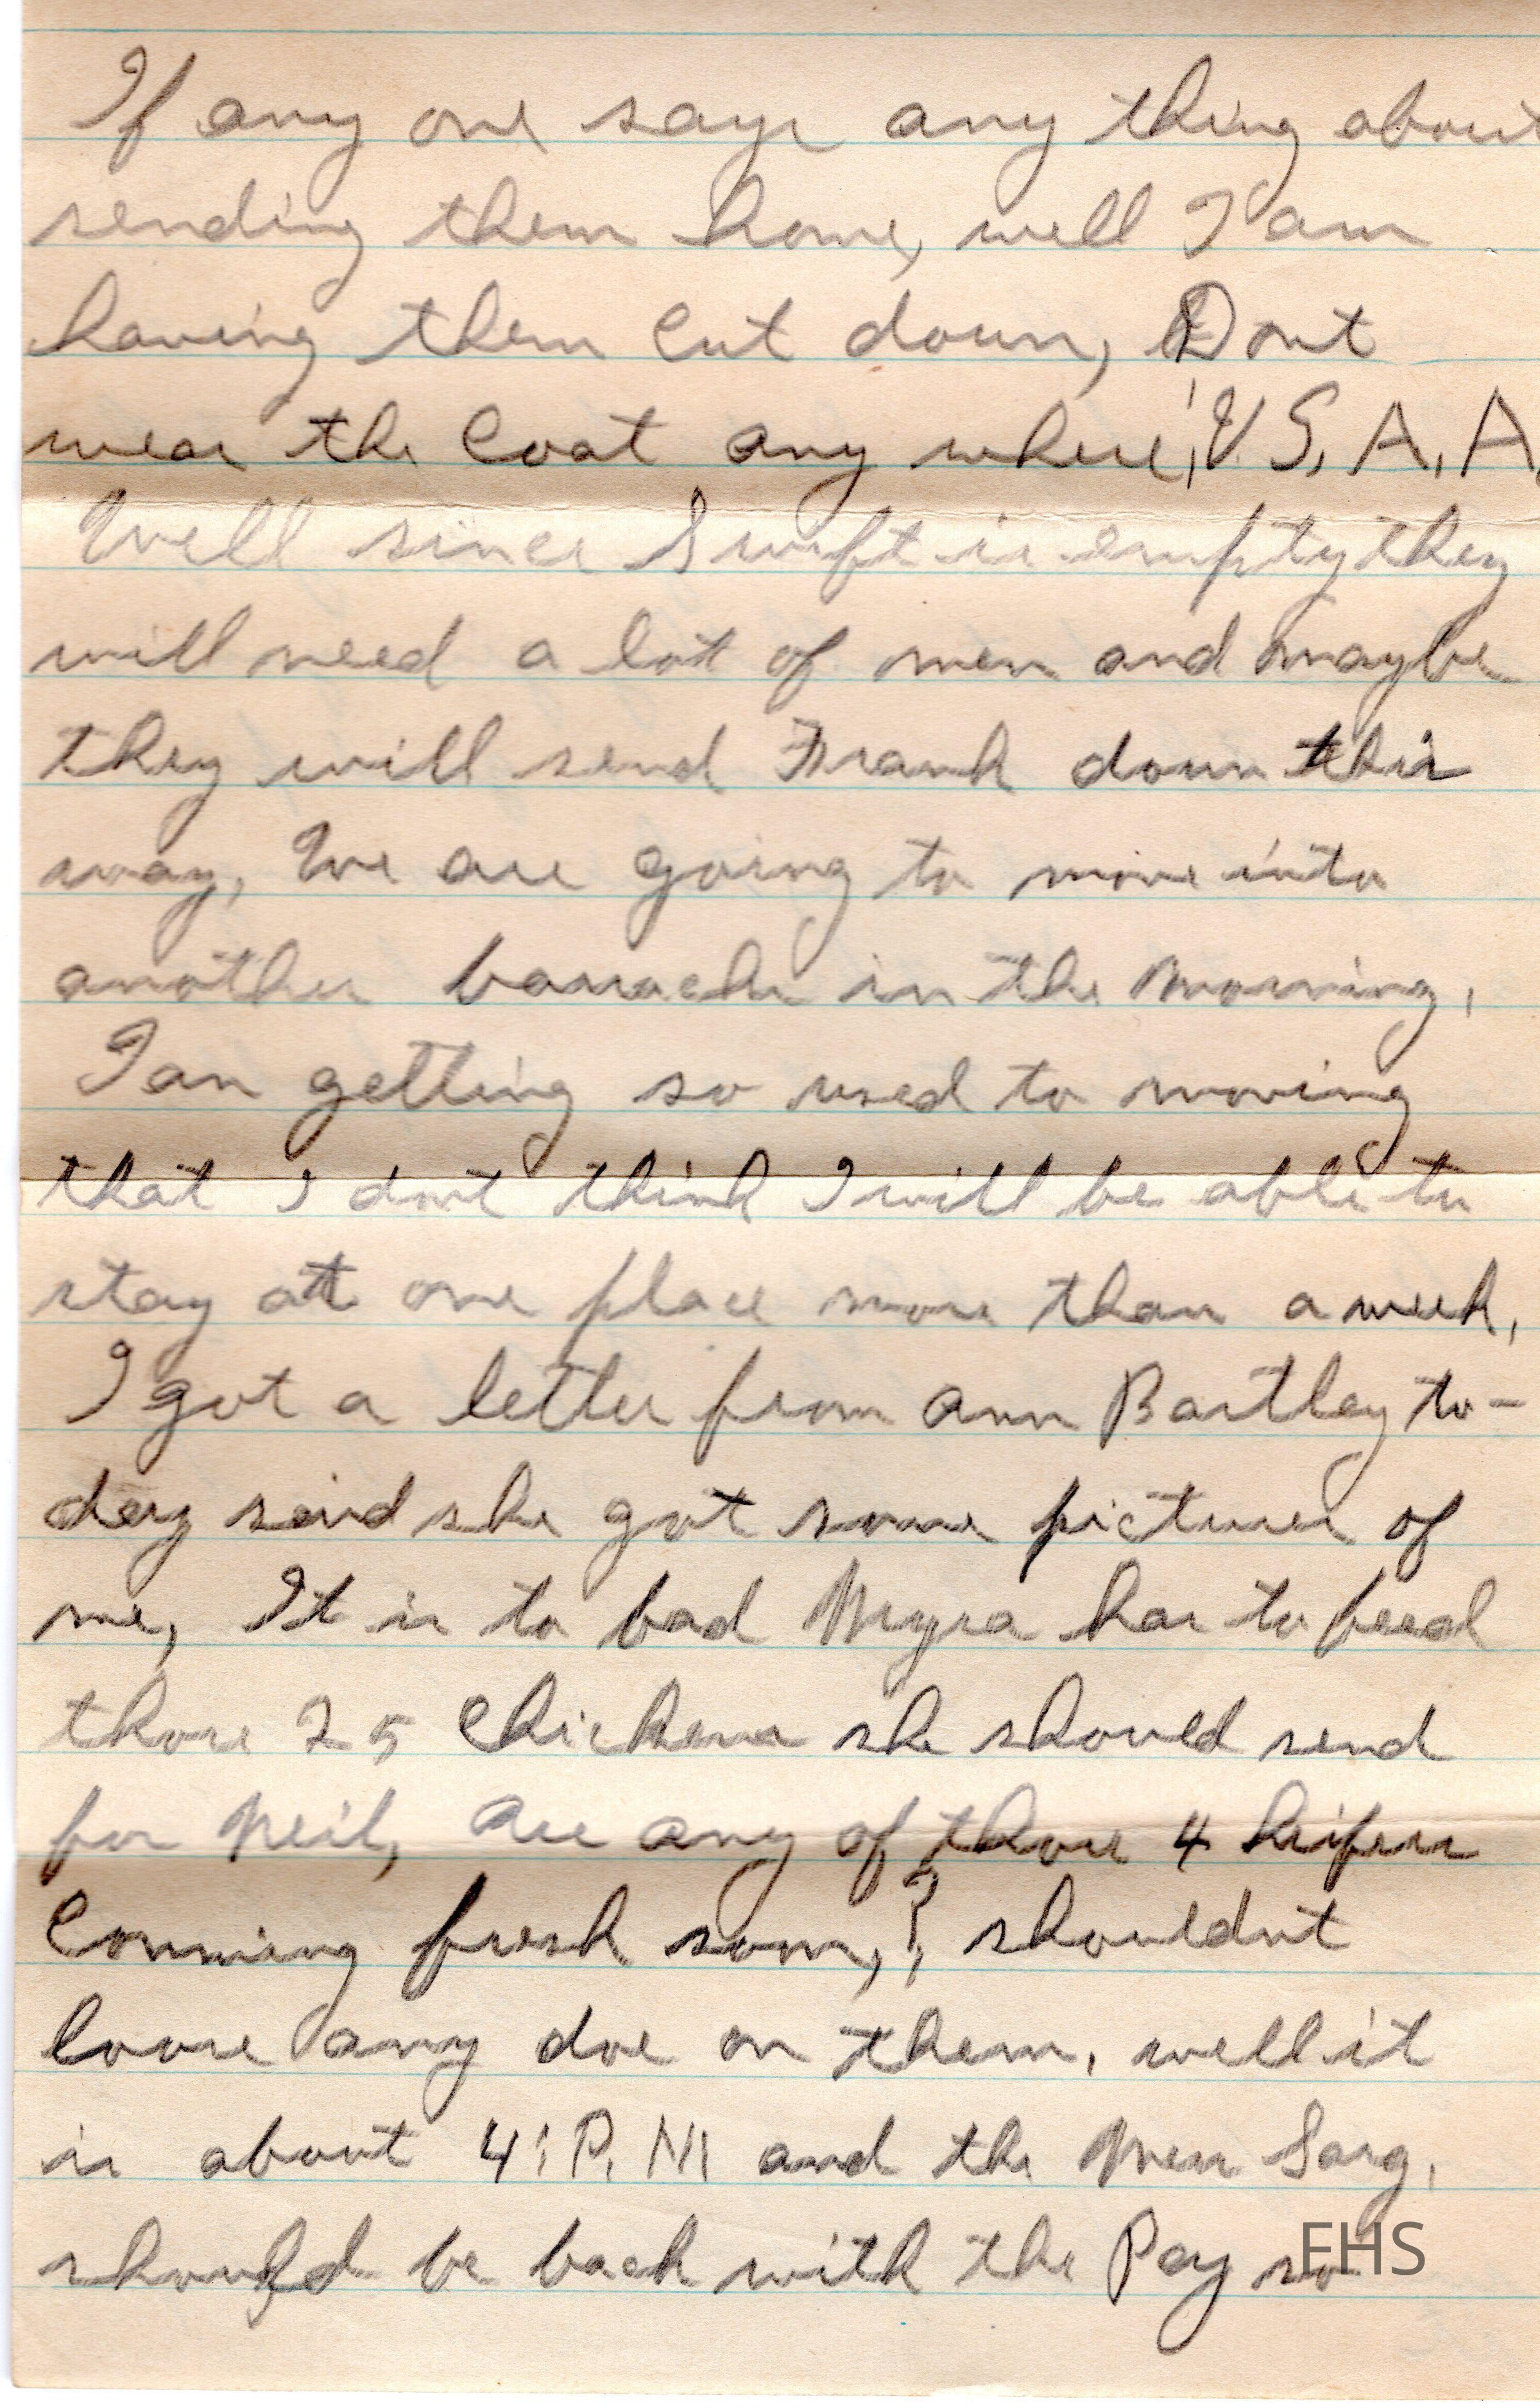 If any one says any thing about
sending them home, well I am
having them cut down, Dont
wear the Coat any where, U.S.A.A.
Well since Swift is empty they
will need a lot of men and maybe
they will send Frank down this
way, We are going to move into
another barracks in the morning.
I an getting so used to moving
that I dont think I will be able to
stay att one place more than a week,
I got a letter from Ann Bartley to-
day said she got some pictures of
me, It is to bad Myra has to feed
those 25 Chickens she should send
for Neil, Are any of those 4 heifers
Comming fresh soon,? shouldnt
loose any doe on them, well it
is about 4: P.M and the Mess Sarg.
should be back with the Pay so
EHS